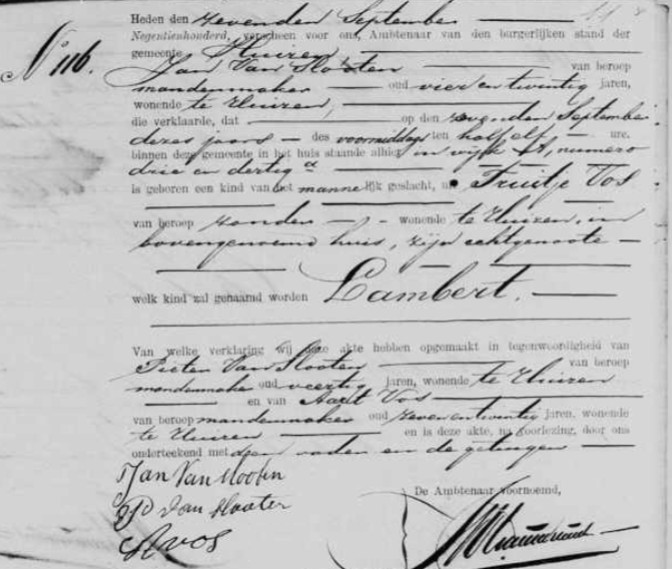 Heden den zevenden September
Negentienhonderd, verscheen voor ons, Ambtenaar van den burgerlijken stand der
gemeente Huizen
No 116.
Jan Van Slooten van beroep
mandenmaker oud vier en twintig jaren,
wonende te Huizen,
die verklaarde, dat op den zevenden September
dezes jaars des voormiddags ten half elf ure.
binnen deze gemeente in het huis staande alhier in wijk A, numero
drie en dertig a
is geboren een kind van het mannelijk geslacht, uit Truitje Vos
van beroep zonder wonende te Huizen, in
bovengenoemd huis, zijn echtgenoote
welk kind zal genaamd worden Lambert.
Van welke verklaring wij deze akte hebben opgemaakt in tegenwoordigheid van
Pieter Van Slooten van beroep
mandenmaker oud veertig jaren, wonende te Huizen
en van Aart Vos
van beroep mandenmaker oud zeven en twintig jaren, wonende
te Huizen en is deze akte, na voorlezing, door ons
onderteekend met den vader en de getuigen
Jan Van Slooten
P Van Slooten
A Vos
De Ambtenaar voornoemd,